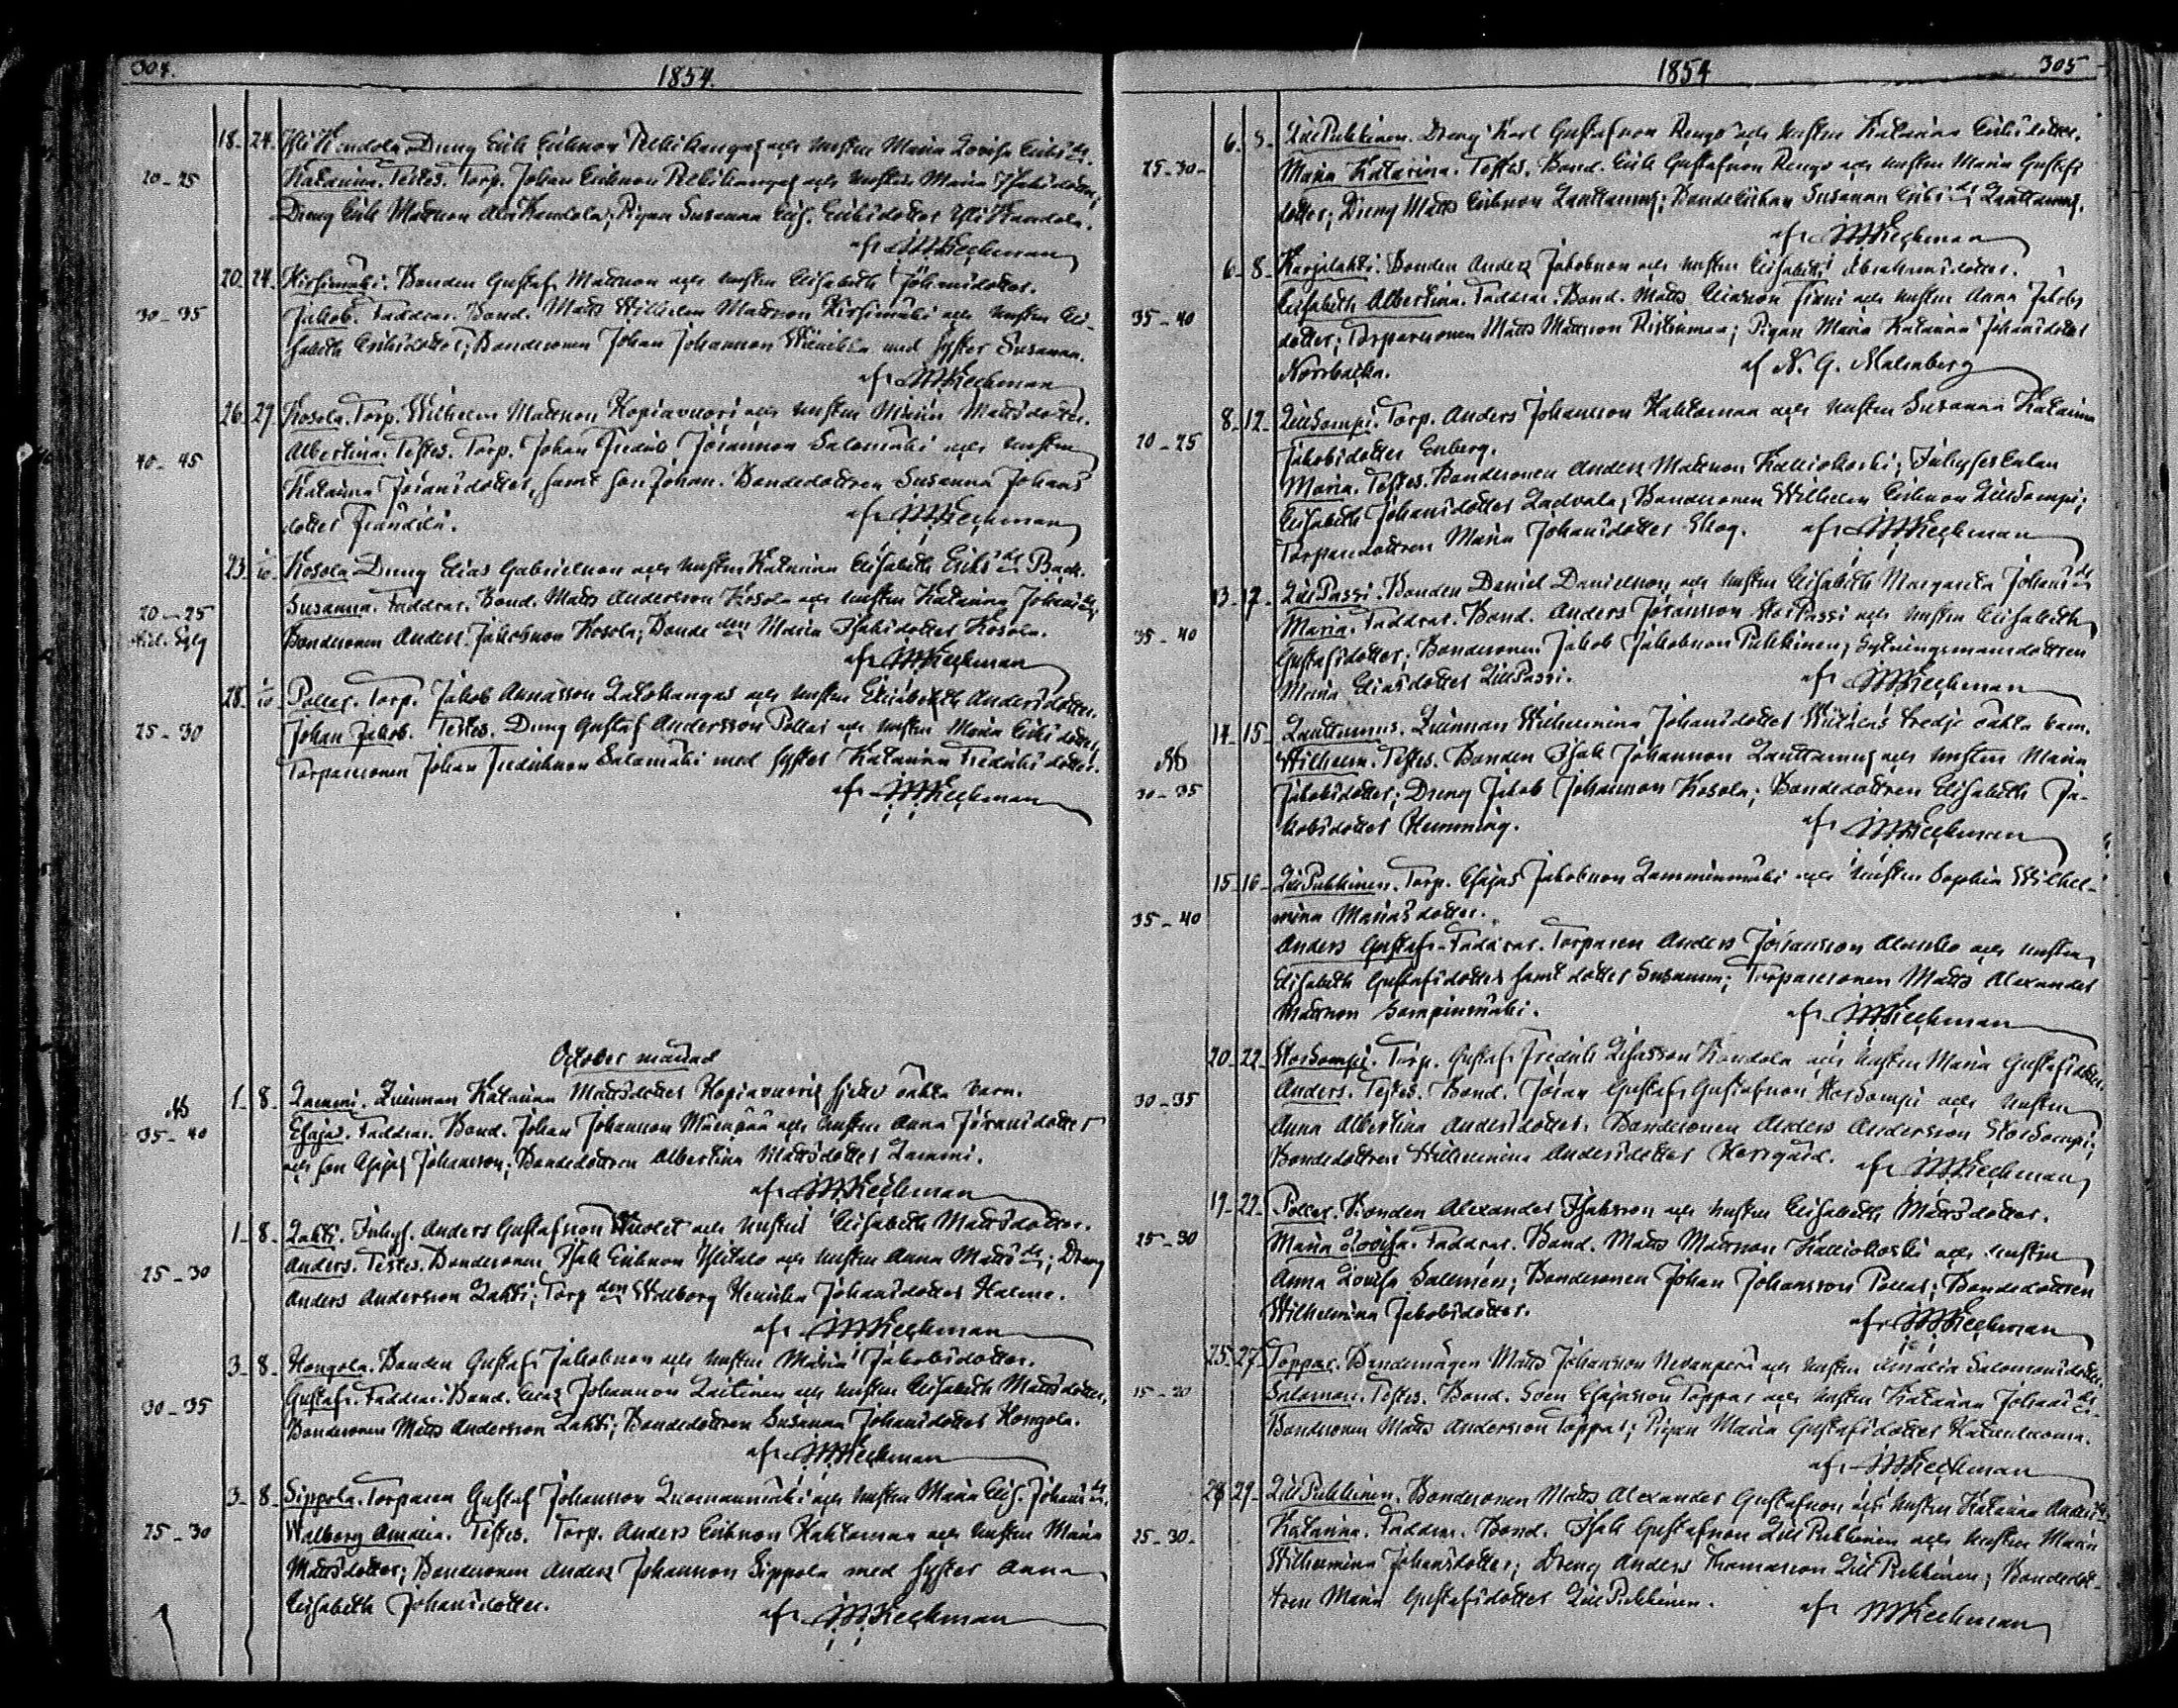 304.
1854.
18. 24. YliKandola. Dräng Erik Eriksson Pelkikangas och hustru Maria Lovisa Eriksdr.
20-25
Katarina. Testes. Torp. Johan Eriksson Pelkikangas och hustru Maria Isaksdotter,
Dräng Erik Mattsson AliKandola; Pigan Susanna Elis. Eriksdotter YliKandola.
af MKeckman
20. 24. Kirsimäki. Bonden Gustaf Mattsson och hustru Elisabeth Johansdotter.
30-35
Jakob. Faddrar. Bond. Matts Wilhelm Mattsson Kirsimäki och hustru Eli-
sabeth Eriksdotter; Bondesonen Johan Johansson med syster Susanna.
af MKeckman
26. 27 Kosola. Torp. Wilhelm Mattsson Kopiavuori och hustru Maria Mattsdotter.
40-45
Albertina. Testes. Torp. Johan Fredrik Göransson Salomäki och hustru
Katarina Göransdotter, samt son Johan. Bondedottren Susanna Johans
dotter Frändilä.
af MKeckman
23. 1/10. Kosola Dräng Elias Gabrielsson och hustru Katarina Elisabeth Eriksdr Back.
20-25
Susanna. Faddrar. Bond. Matts Andersson Kosola och hustru Katarina Johansdr,
Bondesonen Anders Jakobsson Kosola; Bonde den Maria Isaksdotter Kosola.
af MKeckman
28. 1/10 Pollar. Torp. Jakob Annasson Latokangas och hustru Elisabeth Andersdotter.
25-30
Johan Jakob. Testes. Dräng Gustaf Andersson Pollar och hustru Maria Eriksdotter,
Torparesonen Johan Fredriksson Salamäki med syster Katarina Fredriksdotter.
af MKeckman
October månad
1. 8. Lammi. Qvinnan Katarina Mattsdotter Kopiavuoris sjette oäkta barn.
35-40
Esajas. Faddrar. Bond. Johan Johansson Mäenpää och hustru Anna Göransdotter
och son Esajas Johansson; Bondedottren Albertina Mattsdotter Lammi.
af MKeckman
1. 8. Lahti. Inhys. Anders Gustafsson och hustru Elisabeth Mattsdotter.
25-30
Anders. Testes. Bondesonen Isak Eriksson Ylitalo och hustru Anna Mattsdr; Dräng
Anders Andersson Lahti; Torp den Walborg Henrika Johansdotter Halme.
af MKeckman
3. 8. Hongola. Bonden Gustaf Jakobsson och hustru Maria Jakobsdotter.
30-35
Gustaf. Faddrar. Bond. Elias Johansson Laitinen och hustru Elisabeth Mattsdotter,
Bondesonen Matts Andersson Lahti; Bondedottren Susanna Johansdotter Hongola.
af MKeckman
3. 8. Sippola. Torparen Gustaf Johansson Luomanmäki och hustru Maria Elis. Johansdr.
25-30
Walborg Amalia. Testes. Torp. Anders Eriksson Hahtomaa och hustru Maria
Mattsdotter; Bondesonen Anders Johansson Sippola med syster Anna
Elisabeth Johansdotter.
af MKeckman
1854
305
6. 8. LillPukkinen. Dräng Karl Gustafsson Rengo och hustru Katarina Eriksdotter.
25-30
Maria Katarina. Testes. Bond. Erik Gustafsson Rengo och hustru Maria Gustafs
dotter; Dräng Matts Eriksson Lauttamus; Bondehustrun Susanna Eriksdr Lauttamus.
af MKeckman
6. 8. Karjalahti. Bonden Anders Jakobsson och hustru Elisabeth Abrahamsdotter.
35-40
Elisabeth Albertina. Faddrar. Bond. Matts Eliasson Fiani och hustru Anna Jakobs
dotter; Torparesonen Matts Mattsson Ristinmaa; Pigan Maria Katarina Johansdotter
Norrbacka.
af N. G. Malmberg
8. 12. LillSompi. Torp. Anders Johansson Hahtomaa och hustru Susanna Katarina
20-25
Jakobsdotter Enberg.
Maria. Testes. Bondesonen Anders Mattsson Kalliokoski; Inhyseskulan
Elisabeth Johansdotter Ladvala; Bondesonen Wilhelm Eriksson LillSompi;
Torparedottren Maria Johansdotter Skog.
af MKeckman
13. 17. LillPassi. Bonden Daniel Danielsson och hustru Elisabeth Margareta Johansdr
35-40
Maria. Faddrar. Bond. Anders Göransson StorPassi och hustru Elisabeth
Gustafsdotter; Bondesonen Jakob Jakobsson Pukkinen; Sytningsmansdottren
Maria Eliasdotter LillPassi.
af MKeckman
14. 15. Lauttamus. Qvinnan Wilhelmina Johansdotter tredje oäkta barn.
30-35
Wilhelm. Testes. Bonden Isak Johansson Lauttamus och hustru Maria
Jakobsdotter; Dräng Jakob Johansson Kosola; Bondedottren Elisabeth Ja-
kobsdotter Hemming.
af MKeckman
15. 16. LillPukkinen. Torp. Esajas Jakobsson Lamminmäki och hustru Sophia Wilhel-
35-40
mina Mariasdotter.
Anders Gustaf. Faddrar. Torparen Anders Göransson och hustru
Elisabeth Gustafsdotter samt dotter Susanna; Torparesonen Matts Alexander
Mattsson Sompinmäki.
af MKeckman
20. 22. StorSompi. Torp. Gustaf Fredrik Lisasson Kandola och hustru Maria Gustafsdotter.
30-35
Anders. Testes. Bond. Göran Gustaf Gustafsson StorSompi och hustru
Anna Albertina Andersdotter. Bondesonen Anders Andersson StorSompi;
Bondedottren Wilhelmina Andersdotter Herrgård.
af MKeckman
19. 22. Pollar. Bonden Alexander Isaksson och hustru Elisabeth Mattsdotter.
25-30
Maria Lovisa. Faddrar. Bond. Matts Mattsson Kalliokoski och hustru
Anna Lovisa Salenius; Bondesonen Johan Johansson Pollar; Bondedottren
Wilhelmina Jakobsdotter.
af MKeckman
25. 27. Toppar. Bondemågen Matts Johansson Nevanperä och hustru Amalia Salomonsdotter.
15-20
Salomon. Testes. Bond. Sven Esajasson Toppar och hustru Katarina Johansdr.
Bondesonen Matts Andersson Toppar; Pigan Maria Gustafsdotter.
af MKeckman
28. 29. LillPukkinen. Bondesonen Matts Alexander Gustafsson och hustru Katarina Andersdr
25-30.
Katarina. Faddrar. Bond. Isak Gustafsson LillPukkinen och hustru Maria
Wilhelmina Johansdotter; Dräng Anders Thomasson LillPukkinen; Bondedot-
tren Maria Gustafsdotter LillPukkinen.
af MKeckman